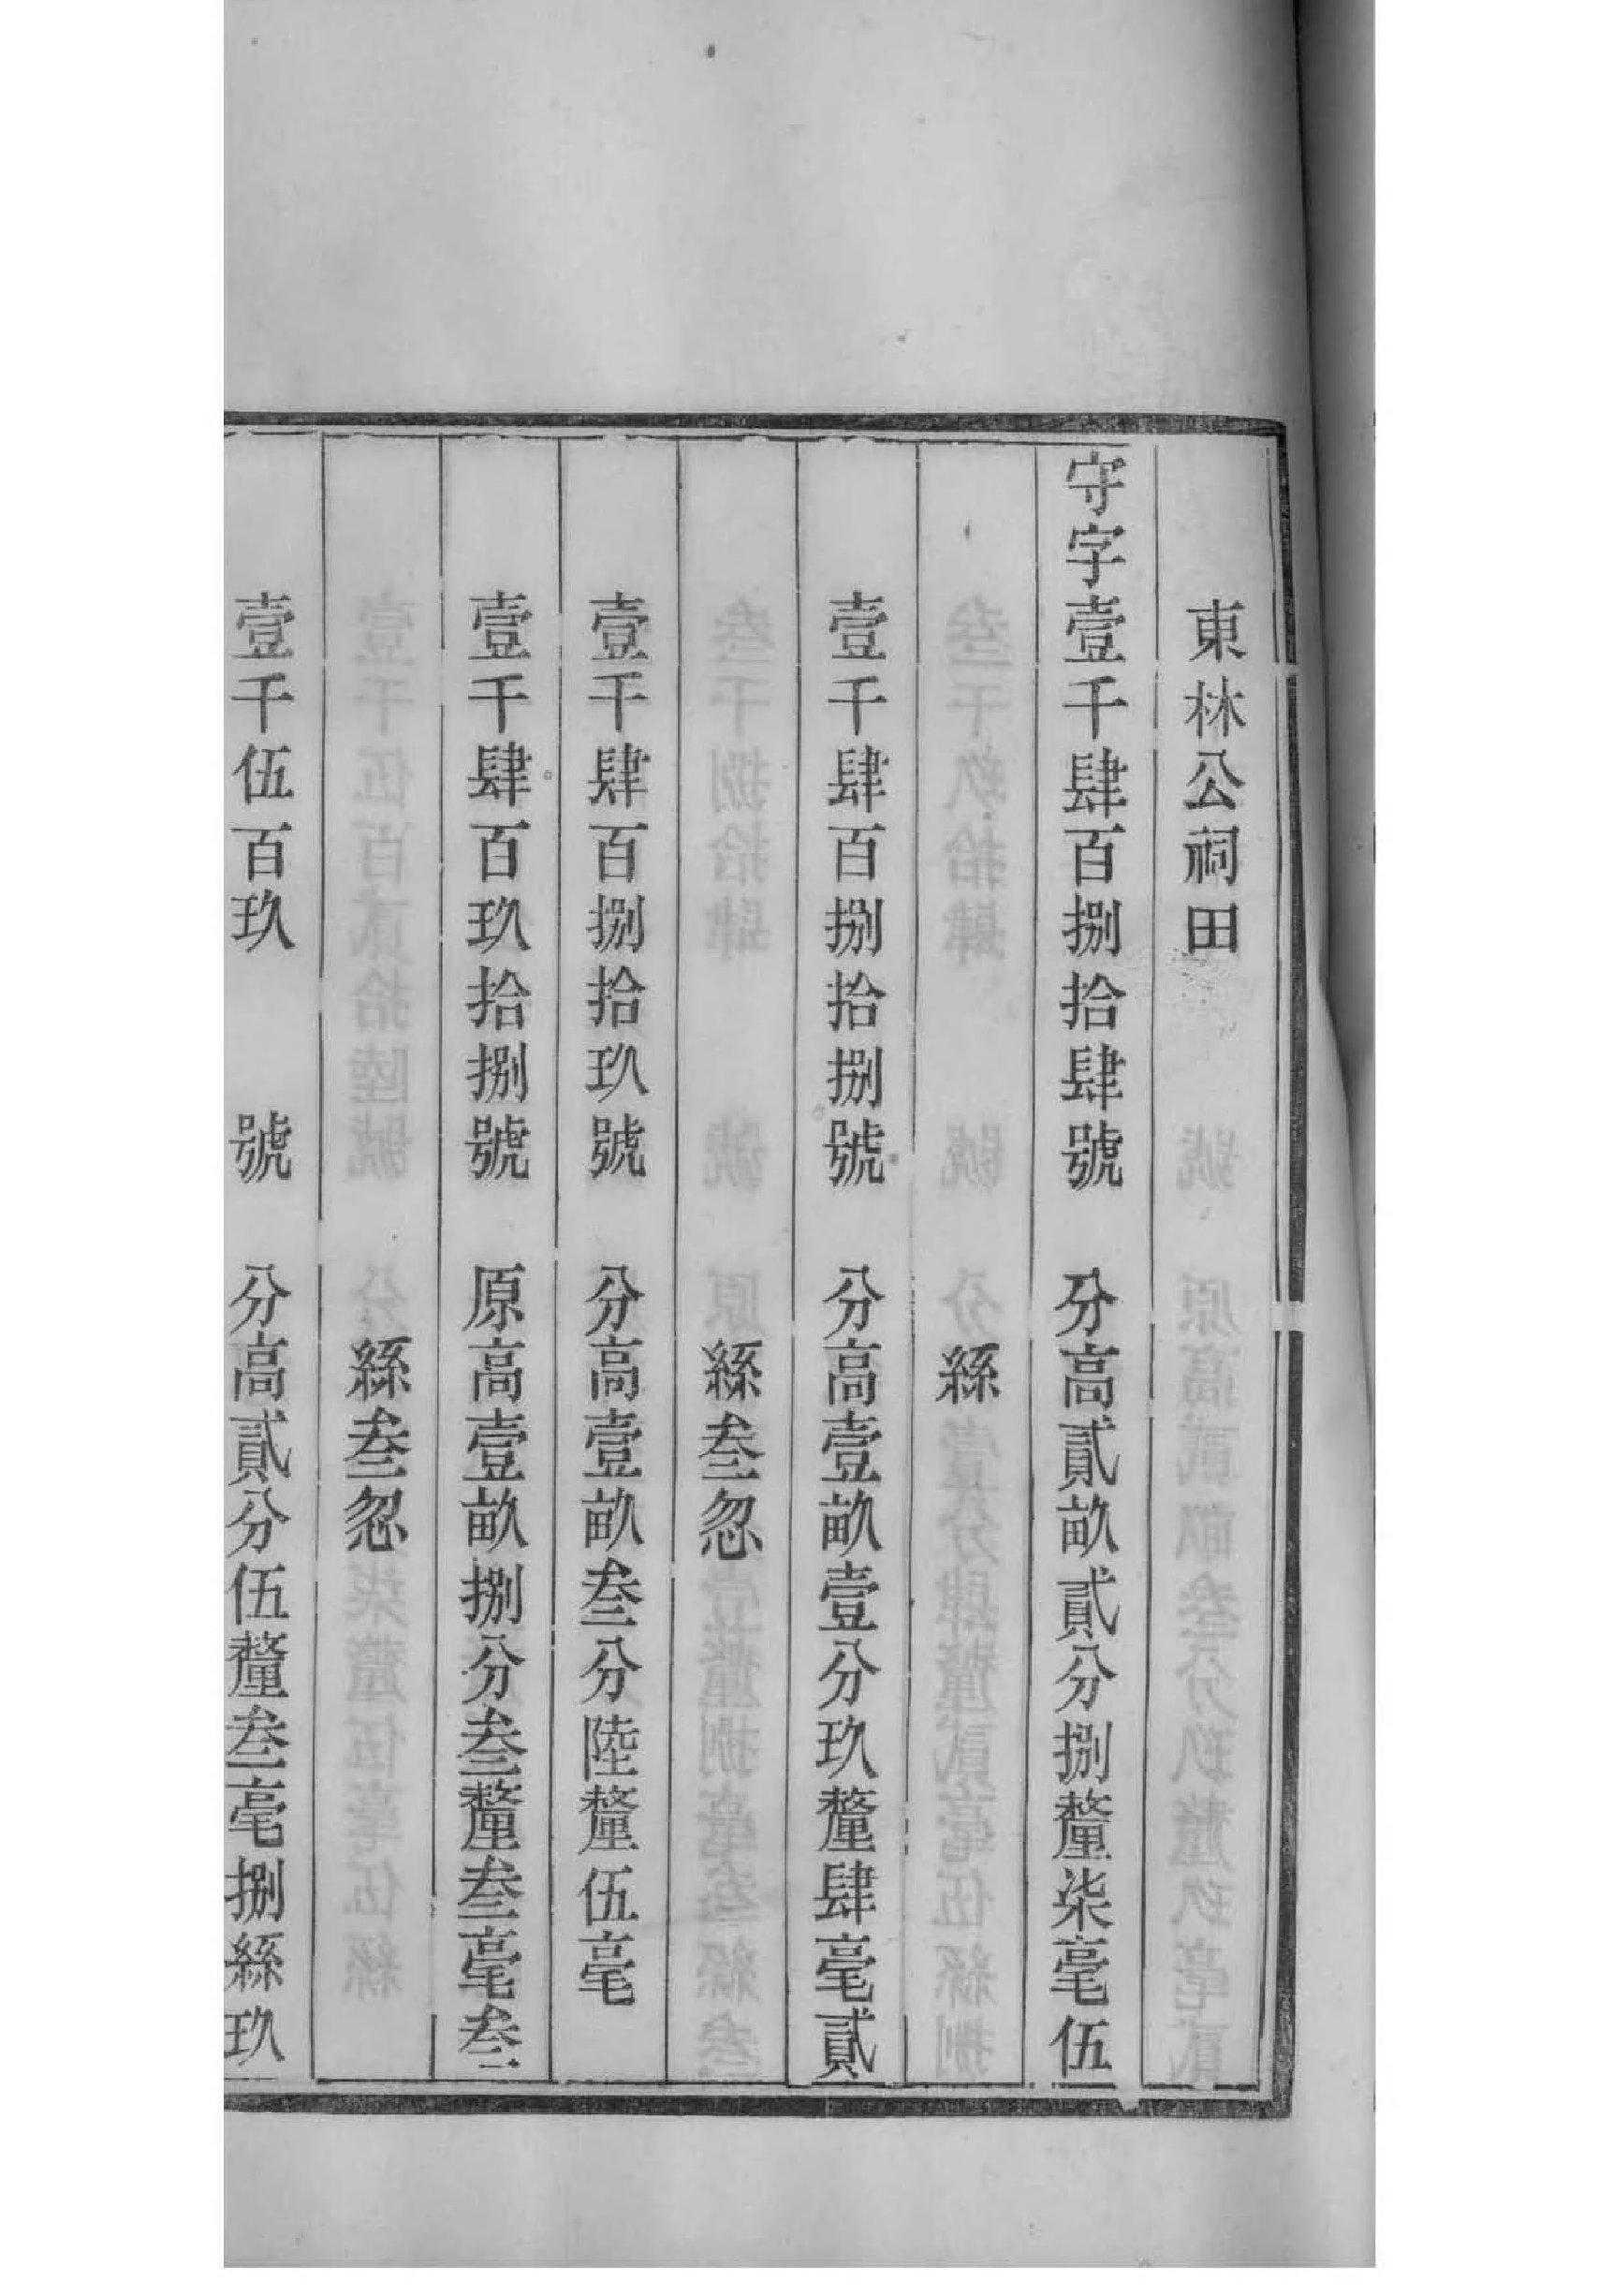 東林公祠田
守字壹千肆百捌拾肆號 分高貳畝貳分捌釐柒毫伍
絲
壹千肆百捌拾捌號 分高壹畝壹分玖釐肆毫貳
絲叁忽
壹千肆百捌拾玖號 分高壹畝叁分陸釐伍毫
壹千肆百玖拾捌號 原高壹畝捌分叁釐叁毫叁
絲叁忽
壹千伍百玖 號 分高貳分伍釐叁毫捌絲玖